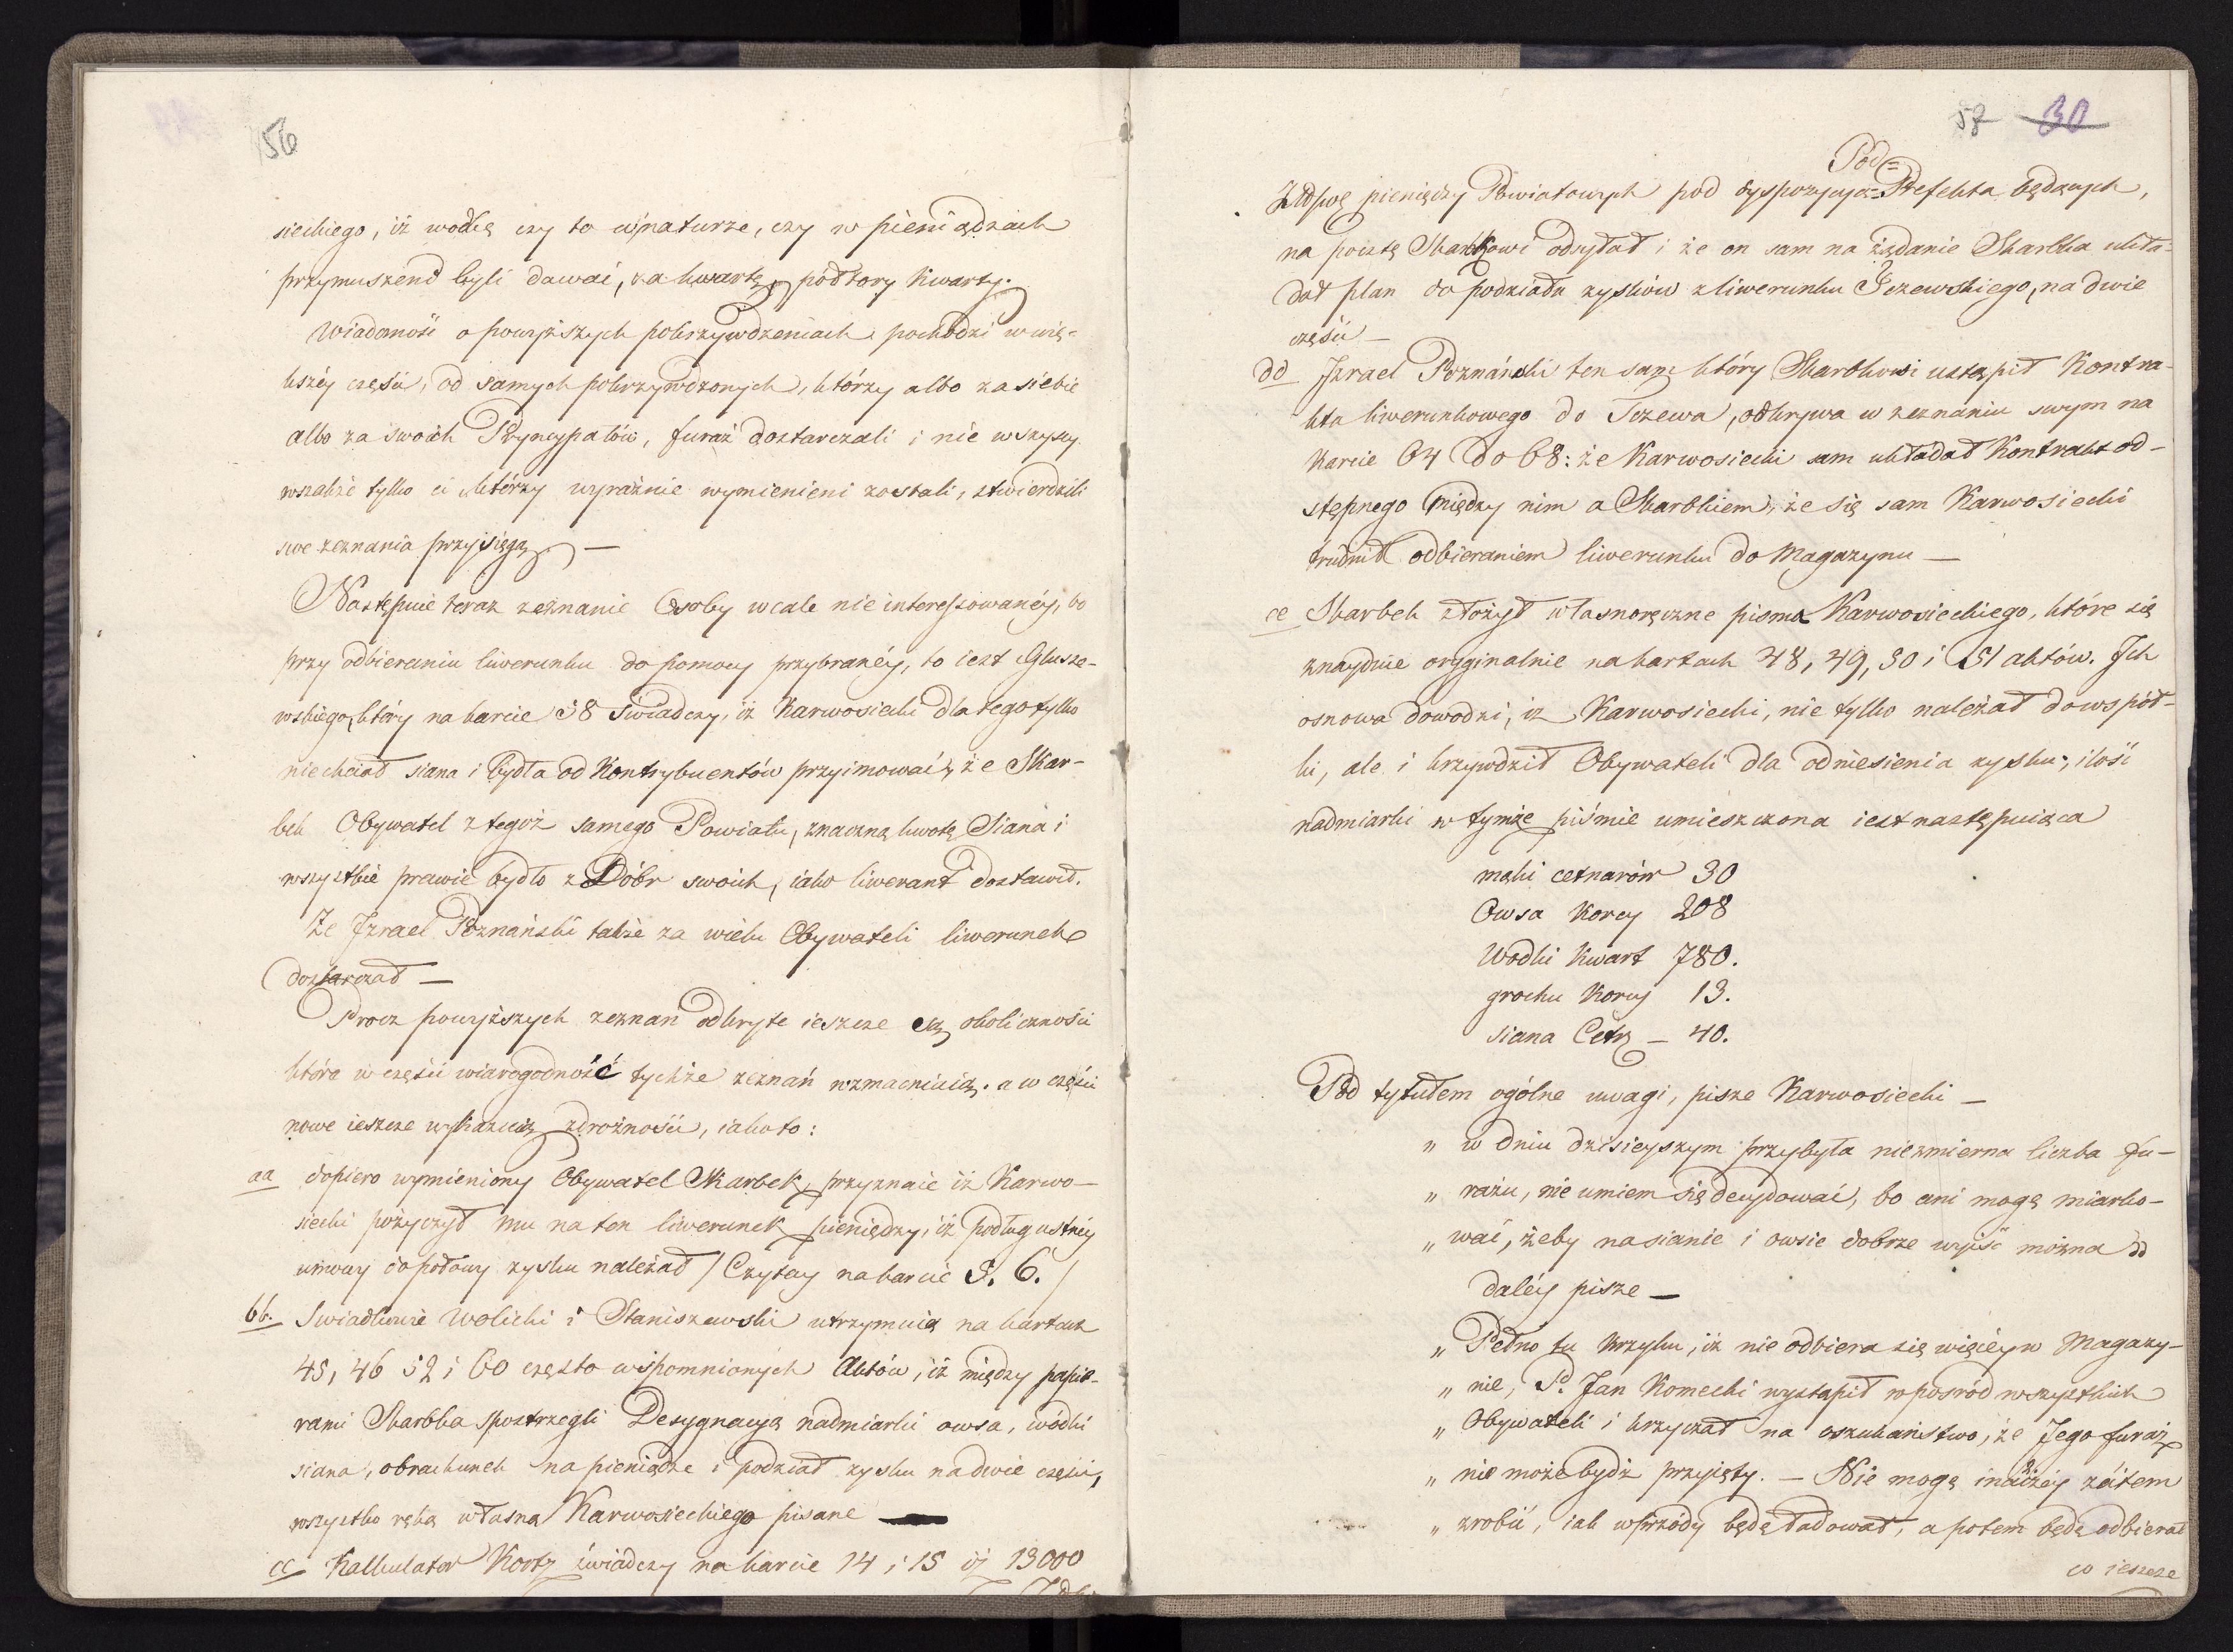 56
sieckiego, iż wodkę czy to w naturze, czy w pieniądzach
przymuszeni byli dawać, za kwartę, półtory kwarty.
Wiadomość o powyższych pokrzywdzeniach pochodzi w wię-
kszéy części, od samych pokrzywdzonych, którzy albo za siebie
albo za swoich Pryncypałów, furaż dostarczali i nie wszyscy
wszakże tylko ci którzy wyraźnie wymienieni zostali, stwierdzili
swe zeznania przysięgą —
Następuie teraz zeznanie Osoby wcale nie interessowanéy, bo
przy odbieraniu liwerunku do pomocy przybranéy, to iest Głusze-
wskiego, który na karcie 58 świadczy, iż Karwosiecki dla tego tylko
niechciał siana i bydła od Kontrybuentów przyimować, że Skar-
bek Obywatel z tegoż samego Powiatu, znaczną kwotę Siana i
wszystkie prawie bydło z Dóbr swoich, iako liwerant dostawił.
Że Izrael Poznański także za wielu Obywateli liwerunek
dostarczał —
Procz powyższych zeznań odkryte ieszcze są okoliczności
które w części wiarogodność tychże zeznań wzmacniaią, a w części
nowe ieszcze wykazuią zdrożności, iako to:
aa dopiero wymieniony Obywatel Skarbek, przyznaie iż Karwo-
siecki pożyczył mu na ten liwerunek pieniędzy, iż podług ustnéy
umowy do połowy zysku należał / Czytay na karcie 5. 6. /
bb. Swiadkowie Wolicki i Staniszewski utrzymuią na kartach
45, 46 52 i 60 często wspomnionych Aktów, iż między papie-
rami Skarbka spostrzegli Desygnacyą nadmiarki owsa, wódki
siana, obrachunek na pieniądze i podział zysku na dwie części,
wszystko ręką własną Karwosieckiego pisane —
cc Kalkulator Kortz świadczy na karcie 14 i 15 iż 13000
57 30
Pod=
Złotych pieniędzy Powiatowych pod dyspozycyą= Prefekta będących,
na pocztę Skarbkowi odsyłał i że on sam na żądanie Skarbka ukła-
dał plan do podziału zysków z liwerunku Tczewskiego, na dwie
części —
dd Izrael Poznański ten sam który Skarbkowi ustąpił Kontra-
ktu liwerunkowego do Tczewa, odkrywa w zeznaniu swym na
karcie 64 do 68: że Karwosiecki sam układał Kontrakt od-
stępnego między nim a Skarbkiem, że się sam Karwosiecki
trudnił odbieraniem liwerunku do Magazynu —
ee Skarbek złożył własnoręczne pisma Karwosieckiego, które się
znayduie oryginalnie na kartach 48, 49, 50 i 51 aktów. Ich
osnowa dowodzi, iż Karwosiecki, nie tylko należał do współ-
ki, ale i krzywdził Obywateli dla odniesienia zysku, ilość
nadmiarki w tymże piśmie umieszczona iest następuiąca
mąki cetnarów 30
Owsa Korcy 208
Wodki Kwart 780.
grochu Korcy 13.
siana Cetr — 40.
Pod tytułem ogólne uwagi, pisze Karwosiecki —
„ w dniu dzisieyszym przybyła niezmierna liczba fu-
„ rażu, nie umiem się decydować, bo ani mogę miarko-
„ wać, żeby na sianie i owsie dobrze wyiść można "
daléy pisze —
„ Pełno tu krzyku, iż nie odbiera się więcéy w Magazy-
„ nie, P. Jan Komecki wystąpił wpośród wszystkich
„ Obywateli i krzyczał na oszukaństwo, że Jego furaż
„ nie może bydź przyięty. — Nie mogę inaczéy zatem
„ zrobić, iak wprzódy będę ładował, a potem będę odbierał
co ieszcze